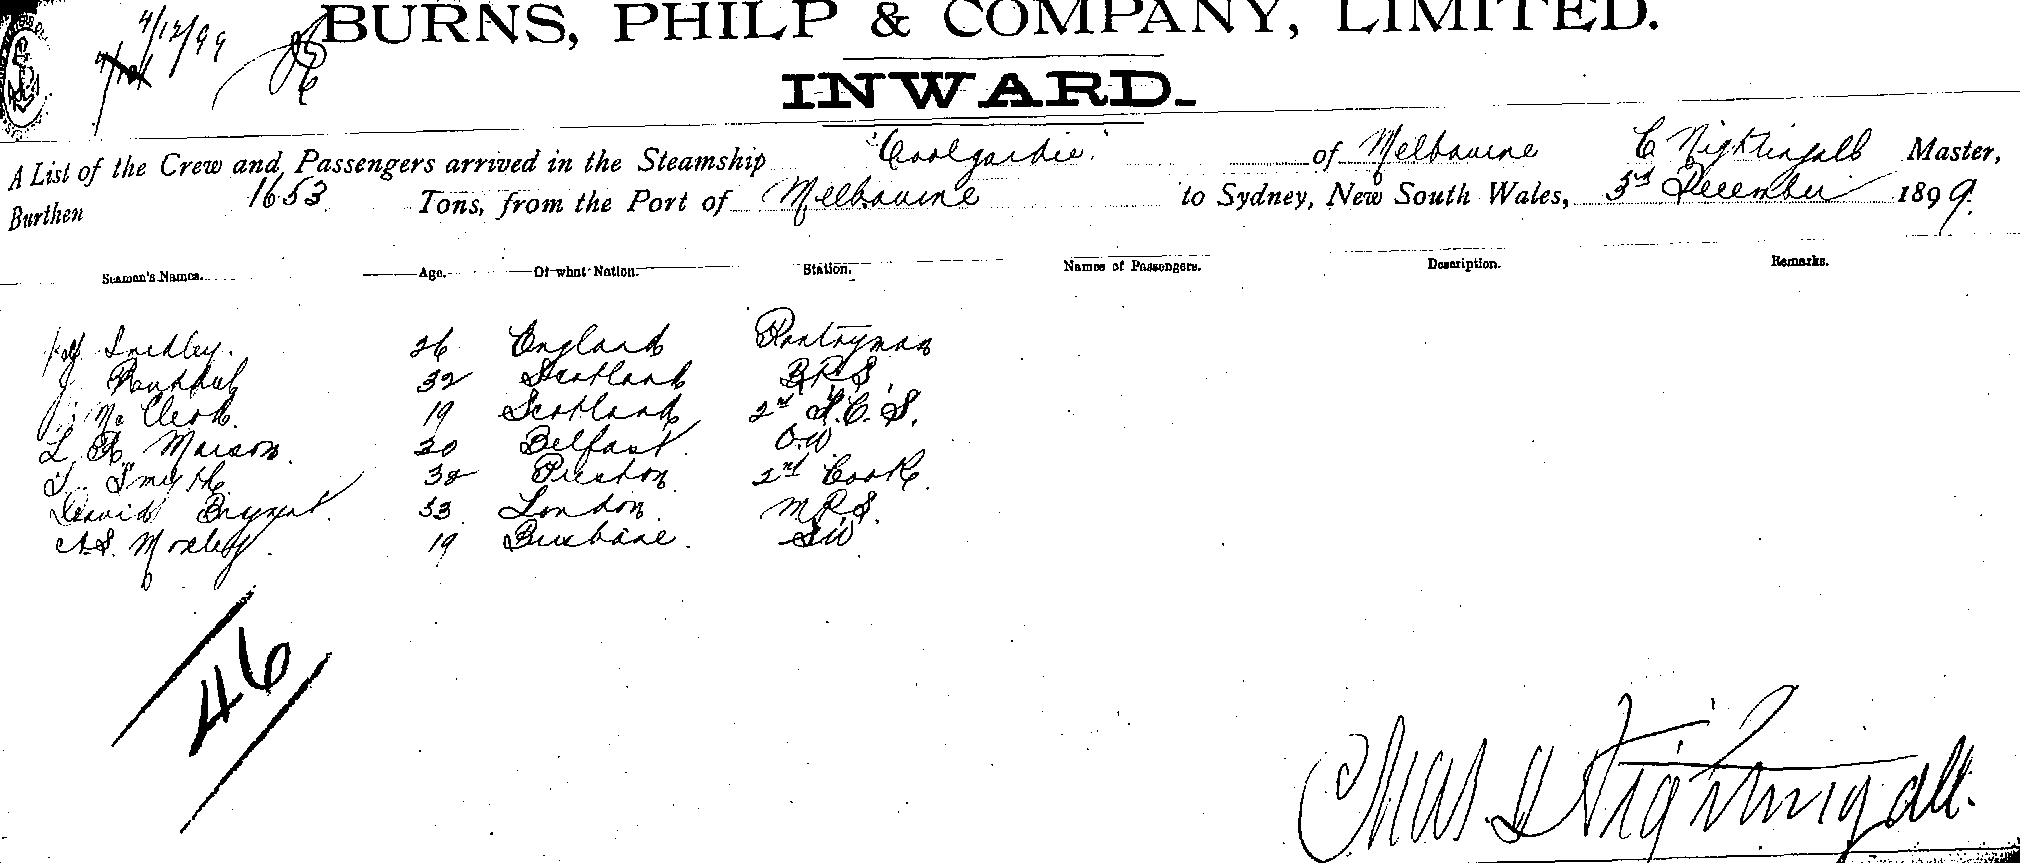 4/12/99
BURNS, PHILP & COMPANY, LIMITED.
INWARD.
A List of the Crew and Passengers arrived in the Steamship "Coolgardie" of Melbourne C Nightingall Master,
Burthen 1653 Tons, from the Port of Melbourne to Sydney, New South Wales, 3rd December 1899.
Seamen's Names. Age. Of what Nation. Station. Names of Passengers. Description. Remarks.
Smedley. 26 England Pantryman
J 32 Scotland B.R.S.
Mc Clerk. 19 Scotland 2nd S.C.S.
L. R. Maison. 20 Belfast O.W
T. Smyth 32 Preston 2nd Cook.
David Bryant. 33 London. M.R.S.
A.S. Morley. 19 Brisbane. SW
46
Chas. H Nightingall.